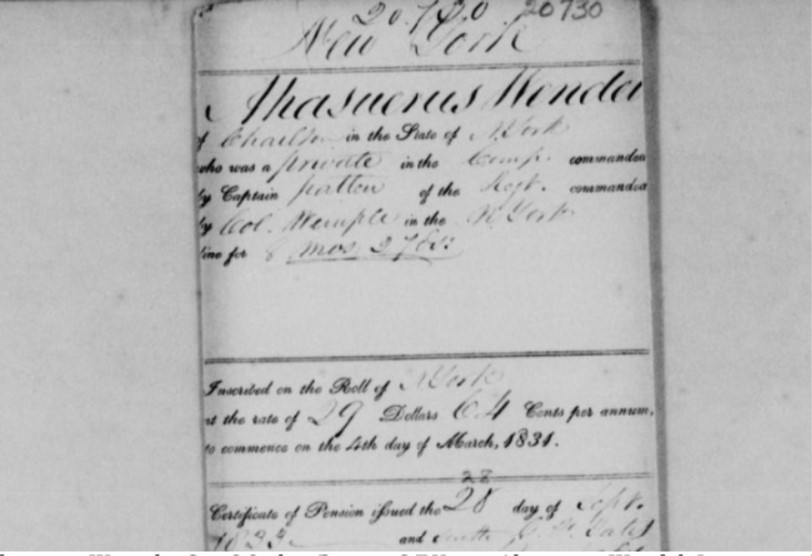 20.730 20730
New York
Ahasuerus Wendel
of Charlton in the State of N. York
who was a private in the Comp. commanded
by Captain Patten of the Regt. commanded
by Col. Wemple in the N. York
line for 8 mos 27 ds
Inscribed on the Roll of N. York
at the rate of 29 Dollars 64 Cents per annum,
to commence on the 4th day of March, 1831.
28
Certificate of Pension issued the 28 day of Sept.
and